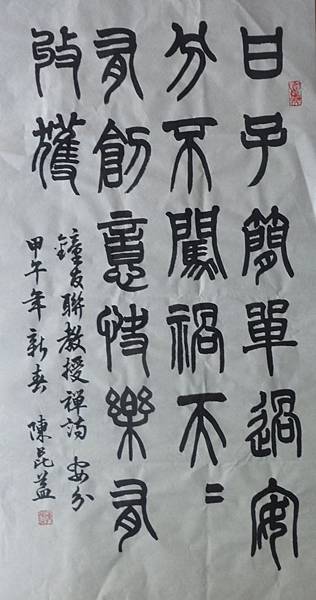 日子簡單過安
分不闖禍天〻
有創意快樂有
收穫
鐘友聯教授禪詩 安分
甲午年新春 陳昆益